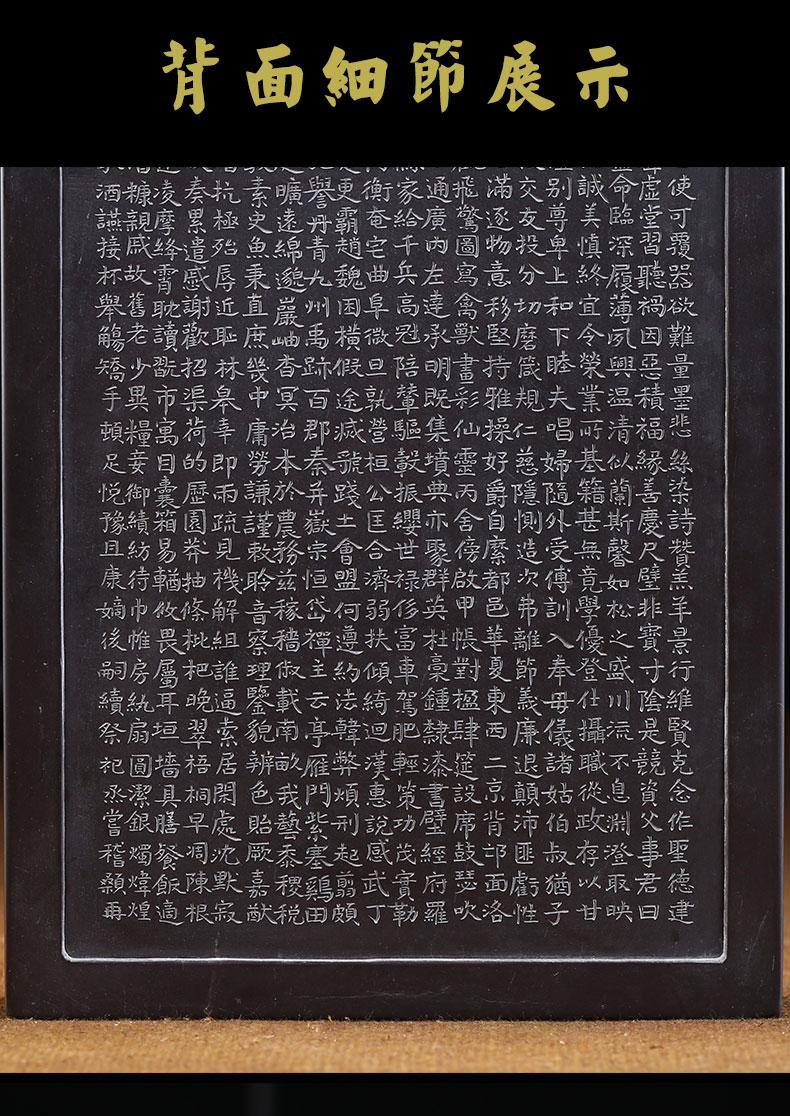 背面細節展示
使可覆器欲難量墨悲絲染詩讚羔羊景行維賢克念作聖德建
虛堂習聽禍因惡積福緣善慶尺璧非寶寸陰是競資父事君曰
命臨深履薄夙興温清似蘭斯馨如松之盛川流不息淵澄取映
誠美慎終宜令榮業所基籍甚無竟學優登仕攝職從政存以甘
別尊卑上和下睦夫唱婦隨外受傅訓入奉母儀諸姑伯叔猶子
交友投分切磨箴規仁慈隱惻造次弗離節義廉退顛沛匪虧性
滿逐物意移堅持雅操好爵自縻都邑華夏東西二京背邙面洛
飛驚圖寫禽獸畫彩仙靈丙舍傍啟甲帳對楹肆筵設席鼓瑟吹
通廣內左達承明既集墳典亦聚群英杜稾鍾隸漆書壁經府羅
家給千兵高冠陪輦驅轂振纓世祿侈富車駕肥輕策功茂實勒
衡奄宅曲阜微旦孰營桓公匡合濟弱扶傾綺迴漢惠說感武丁
更霸趙魏困橫假途滅虢踐土會盟何遵約法韓弊煩刑起翦頗
譽丹青九州禹跡百郡秦并嶽宗恒岱禪主云亭雁門紫塞鷄田
曠遠綿邈巖岫杳冥治本於農務茲稼穡俶載南畝我藝黍稷稅
素史魚秉直庶幾中庸勞謙謹敕聆音察理鑒貌辨色貽厥嘉猷
抗極殆辱近恥林皋幸即兩疏見機解組誰逼索居閑處沈默寂
奏累遣慼謝歡招渠荷的歷園莽抽條枇杷晚翠梧桐早凋陳根
凌摩絳霄耽讀翫市寓目囊箱易輶攸畏屬耳垣墻具膳餐飯適
糠親戚故舊老少異糧妾御績紡侍巾帷房紈扇圓潔銀燭煒煌
酒讌接杯舉觴矯手頓足悅豫且康嫡後嗣續祭祀烝嘗稽顙再